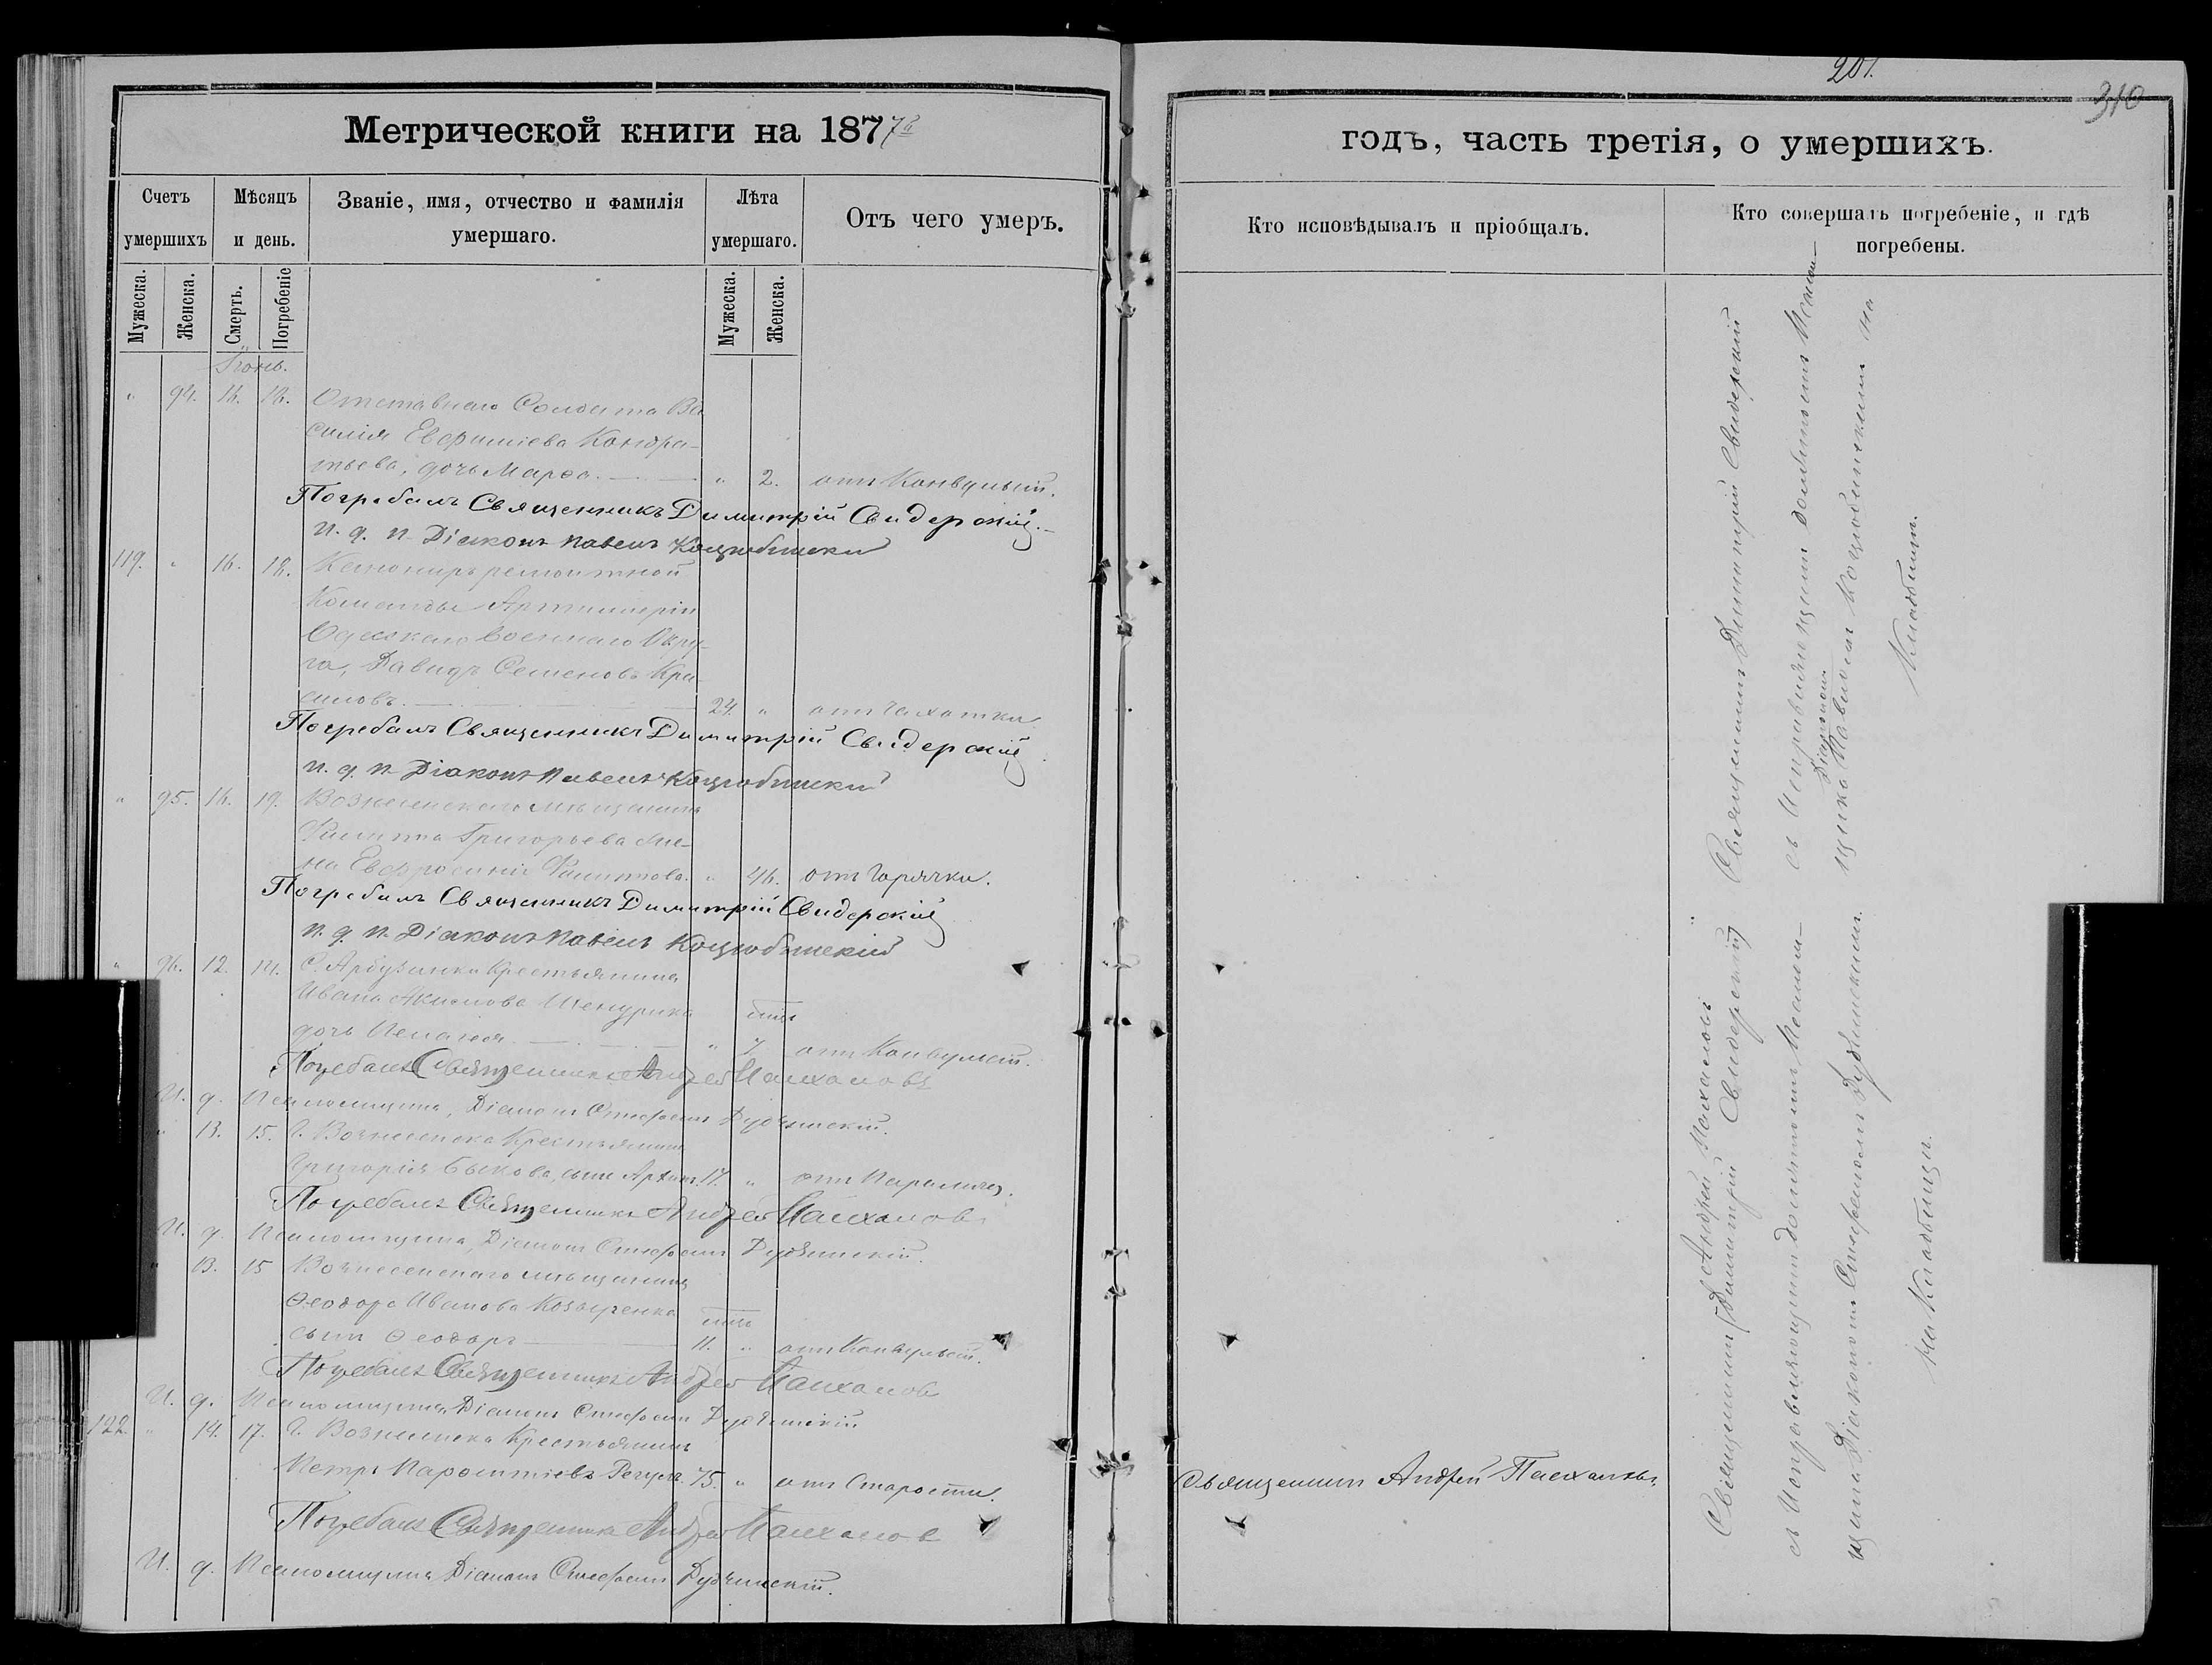 201.
310
Метрической книги на 1877й
годъ, часть третія, о умершихъ.
Счетъ умершихъ
Мѣсяцъ и день.
Званіе, имя, отчество и фамилія умершаго.
Лѣта умершаго.
Отъ чего умеръ.
Кто исповѣдывалъ и пріобщалъ.
Кто совершалъ погребеніе, и гдѣ погребены.
Мужеска.
Женска.
Смерть.
Погребеніе
Мужеска.
Женска.
Іюнь.
" 94. 16. 18. Отставнаго Солдата Ва
силія Евфиміева Кондра-
тьева, дочь Марѳа. " 2. отъ Конвульсій.
Погребалъ Священникъ Димитрій Свидерскій.
и. д. п. Діаконъ Павелъ Коцюбински
119. " 16. 18. Канониръ ремонтной
Команды Артиллеріи
Одесскаго Военнаго Окру-
га, Давидъ Семеновъ Кра-
силовъ. 24. " отъ Чахотки
Погребалъ Священникъ Димитрій Свидерскій
и. д. п. Діаконъ Павелъ Коцюбински
" 95. 16. 19. Вознесенскаго мѣщанина
Филиппа Григорьева
на Евфросинія Филиппова. " 46. отъ Горячки.
Погребалъ Священникъ Димитрій Свидерскій
и. д. п. Діаконъ Павелъ Коцюбинскій
" 96. 12. 14. С. Арбузинки Крестьянина
Ивана Акимова Шенурика
дочь Пелагея " 7. отъ Конвульсій.
Погребалъ Священникъ Андрей Пасхаловъ
И. д. Псаломщика, Діаконъ Стефанъ Дубчинскій.
" 13. 15. Г. Вознесенска Крестьянина
Григорія Быкова, сынъ Архип. 17. " отъ Паралича.
Погребалъ Священникъ Андрей Пасхаловъ
И. д. Псаломщика, Діаконъ Стефанъ Дубчинскій.
" 13. 15 Вознесенскаго мѣщанина
Ѳеодора Иванова Козыренка
сынъ Ѳеодоръ 11. " отъ Конвульсій.
Погребалъ Священникъ Андрей Пасхалов
И. д. Псаломщика, Діаконъ Стефанъ Дубчинскій
122. " 14. 17. Г. Вознесенска Крестьянинъ
Петръ 75. " отъ Старости.
Погребалъ Священникъ Андрей Пасхалов
И. д. Псаломщика Діаконъ Стефанъ Дубчинскій.
Священникъ Андрей Пасхаловъ.
Священникъ Димитрій Свидерскій
съ Исправляющимъ должность Псалом-
щика Діакономъ Павломъ Коцюбинскимъ на
Кладбищѣ.
Священникъ Андрей Пасхаловъ
Димитрій Свидерскій
съ Исправляющимъ должность Псалом-
щика Діакономъ Стефаномъ Дубчинскимъ.
на Кладбищѣ.